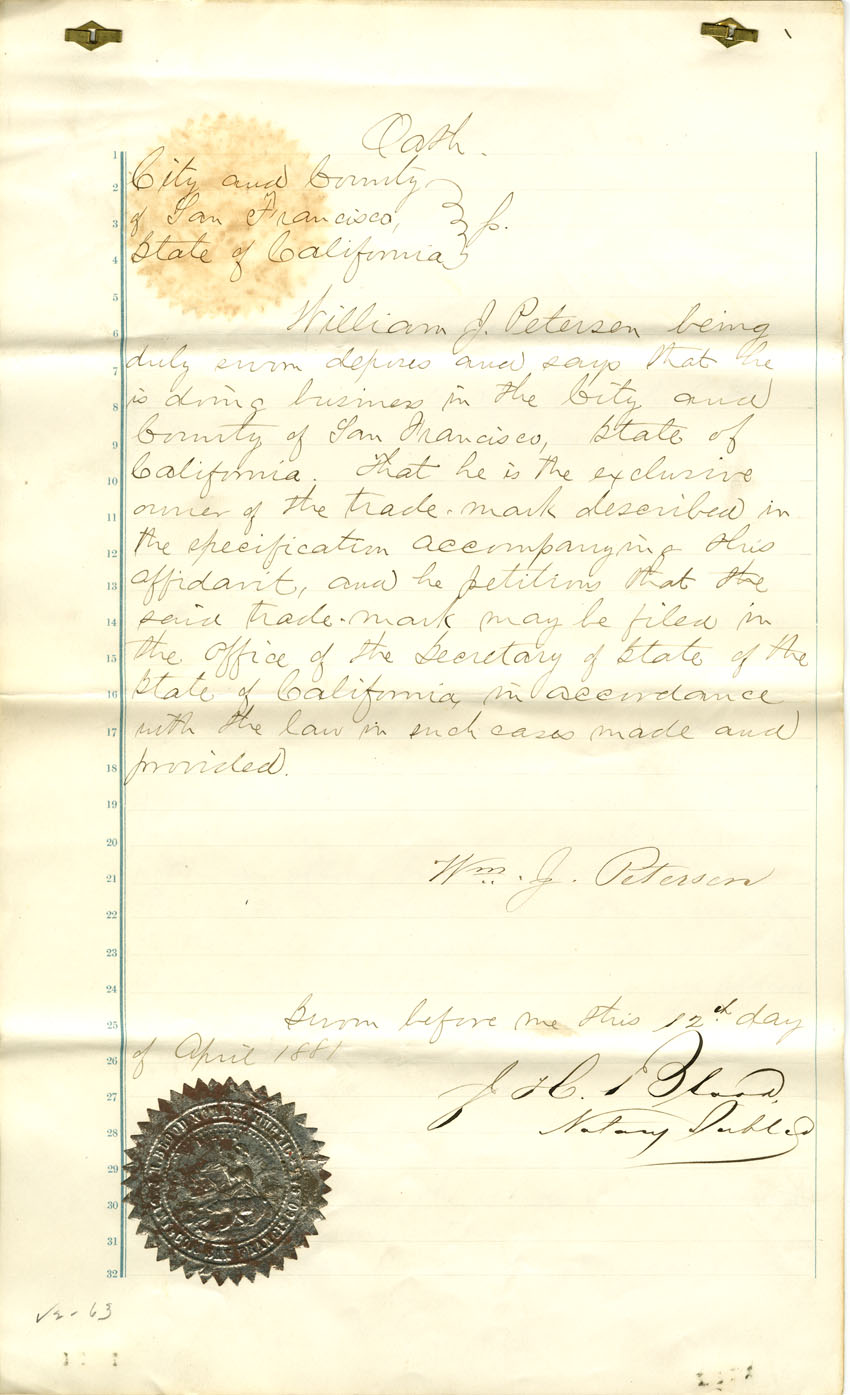 Oath.
City and County
of San Francisco,
State of California
} ss.
William J. Petersen being
duly sworn deposes and says that he
is doing business in the City and
County of San Francisco, State of
California. That he is the exclusive
owner of the trade-mark described in
the specification accompanying this
affidavit, and he petitions that the
said trade-mark may be filed in
the office of the Secretary of State of the
State of California, in accordance
with the law in such cases made and
provided.
Wm. J. Petersen
Sworn before me this 12th day
of April 1881
J. H. Blood,
Notary Public
1
2
3
4
5
6
7
8
9
10
11
12
13
14
15
16
17
18
19
20
21
22
23
24
25
26
27
28
29
30
31
32